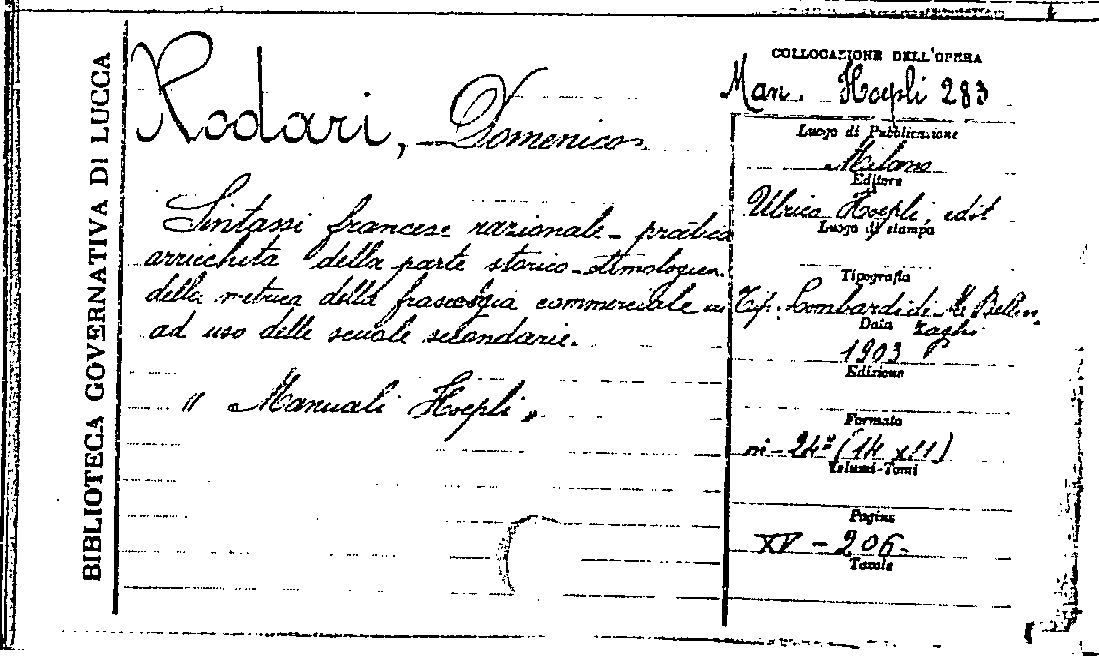 BIBLIOTECA GOVERNATIVA DI LUCCA
Rodari, Domenico
Sintassi francese razionale-pratica
arricchita della parte storico-etimologica
della metrica della fraseologia commerciale
ad uso delle scuole secondarie.
"Manuali Hoepli"
COLLOCAZIONE DELL'OPERA
Man. Hoepli 283
Luogo di Pubblicazione
Milano
Editore
Ulrico Hoepli, edit
Luogo di stampa
Tipografia
Tip. Lombardi di M. Bellin
Data
zaghi
1903
Edizione
Formato
in-24° (14 x 11)
Volumi-Tomi
Pagine
XV - 206.
Tavole